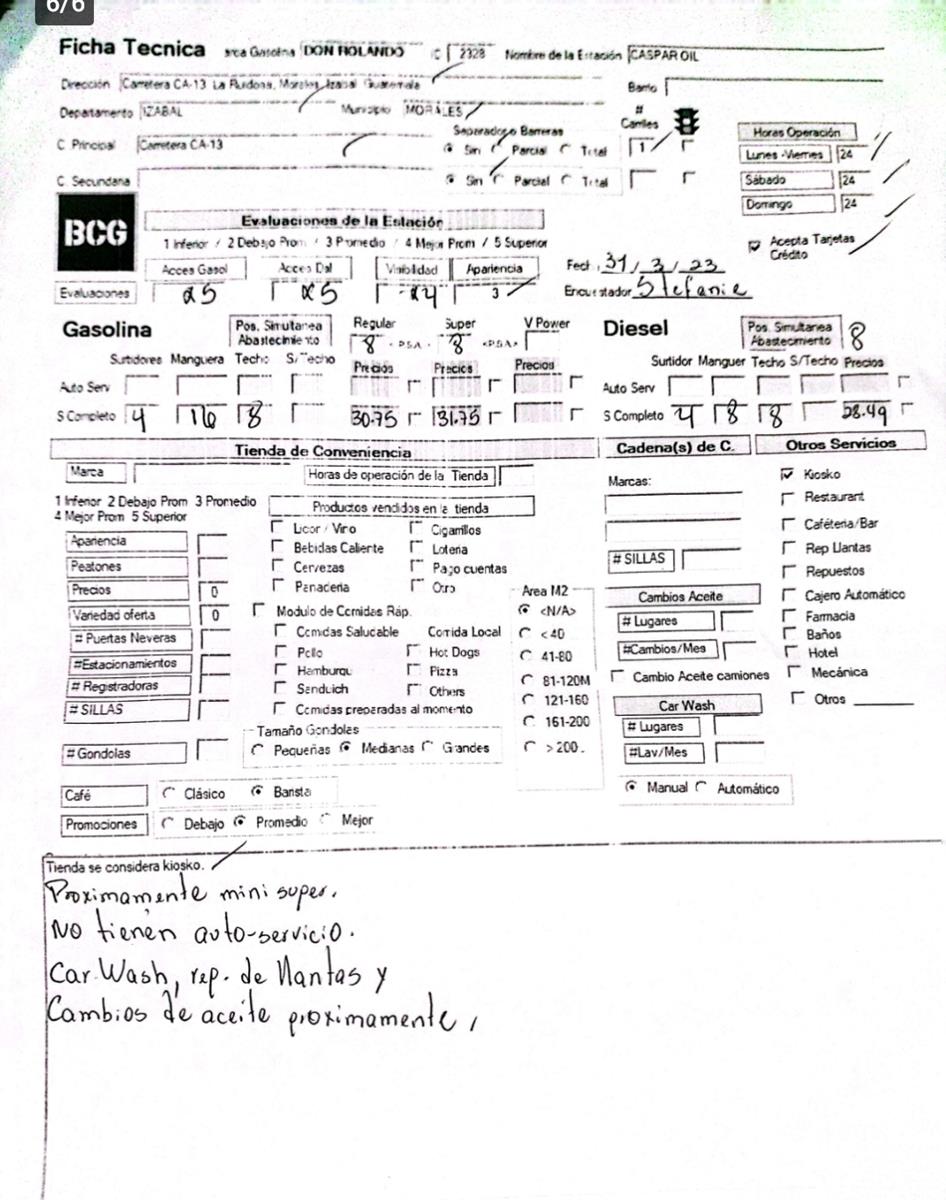 6/6
Ficha Tecnica rca Gasolina DON ROLANDO C 2328 Nombre de la Estación CASPAR OIL
Dirección Carretera CA-13 La Ruidosa, Morales, Izabal Guatemala Barrio
Departamento IZABAL Municipio MORALES # Carriles
C Principal Carretera CA-13 Separador o Barreras Sin Parcial Total 1
C. Secundaria Sin Parcial Total
Horas Operación
Lunes -Viernes 24
Sábado 24
Domingo 24
BCG
Evaluaciones de la Estación
1 Inferior / 2 Debajo Prom / 3 Promedio / 4 Mejor Prom / 5 Superior
Acepta Tarjetas Crédito
Acces Gasol Acces Dsl Visibilidad Apariencia
Fech. 31/3/23
Evaluaciones 5 5 4 3
Encuestador Stefanie
Gasolina Pos. Simultanea Abastecimiento Regular 8 <PSA> Super 8 <PSA> V Power
Diesel Pos. Simultanea Abastecimiento 8
Surtidores Manguera Techo S/Techo Precios Precios Precios
Surtidor Manguer Techo S/Techo Precios
Auto Serv
Auto Serv
S Completo 4 16 8 30.75 31.75
S Completo 4 8 8 28.49
Tienda de Conveniencia
Marca Horas de operación de la Tienda
1 Inferior 2 Debajo Prom 3 Promedio
4 Mejor Prom 5 Superior
Productos vendidos en la tienda
Apariencia
Peatones
Precios 0
Variedad oferta 0
# Puertas Neveras
#Estacionamientos
# Registradoras
# SILLAS
# Gondolas
Licor / Vino Cigarrillos
Bebidas Caliente Loteria
Cervezas Pago cuentas
Panaderia Otro
Modulo de Comidas Ráp.
Comidas Saludable Comida Local
Pollo Hot Dogs
Hamburgu Pizza
Sanduich Others
Comidas preparadas al momento
Tamaño Gondolas
Pequeñas Medianas Grandes
Area M2
<N/A>
< 40
41-80
81-120M
121-160
161-200
> 200.
Café Clásico Barista
Promociones Debajo Promedio Mejor
Cadena(s) de C.
Marcas:
# SILLAS
Cambios Aceite
# Lugares
#Cambios/Mes
Cambio Aceite camiones
Car Wash
# Lugares
#Lav/Mes
Manual Automático
Otros Servicios
Kiosko
Restaurant
Caféteria/Bar
Rep Llantas
Repuestos
Cajero Automático
Farmacia
Baños
Hotel
Mecánica
Otros
Tienda se considera kiosko.
Proximamente mini super.
No tienen auto-servicio.
Car Wash, rep. de llantas y
Cambios de aceite proximamente,